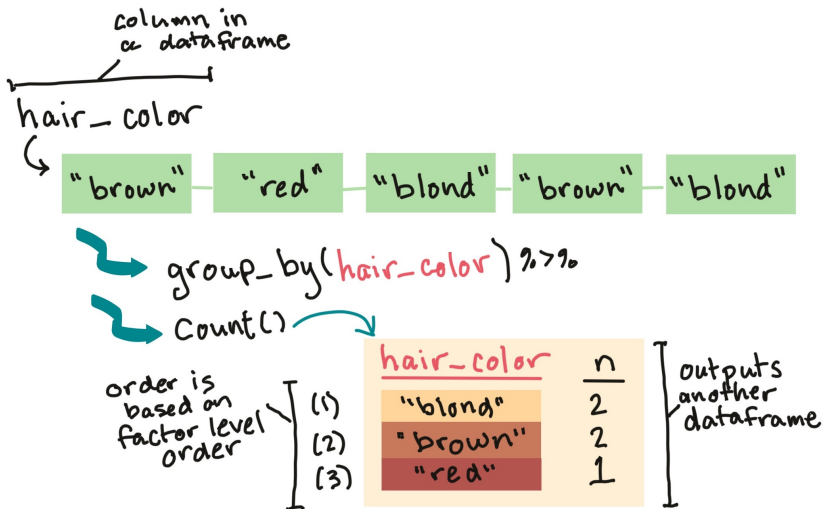 column in
a dataframe
hair_color
"brown" "red" "blond" "brown" "blond"
group_by(hair_color) %>%
Count()
hair_color n
order is
based on
factor level
order
(1) "blond" 2
(2) "brown" 2
(3) "red" 1
outputs
another
dataframe